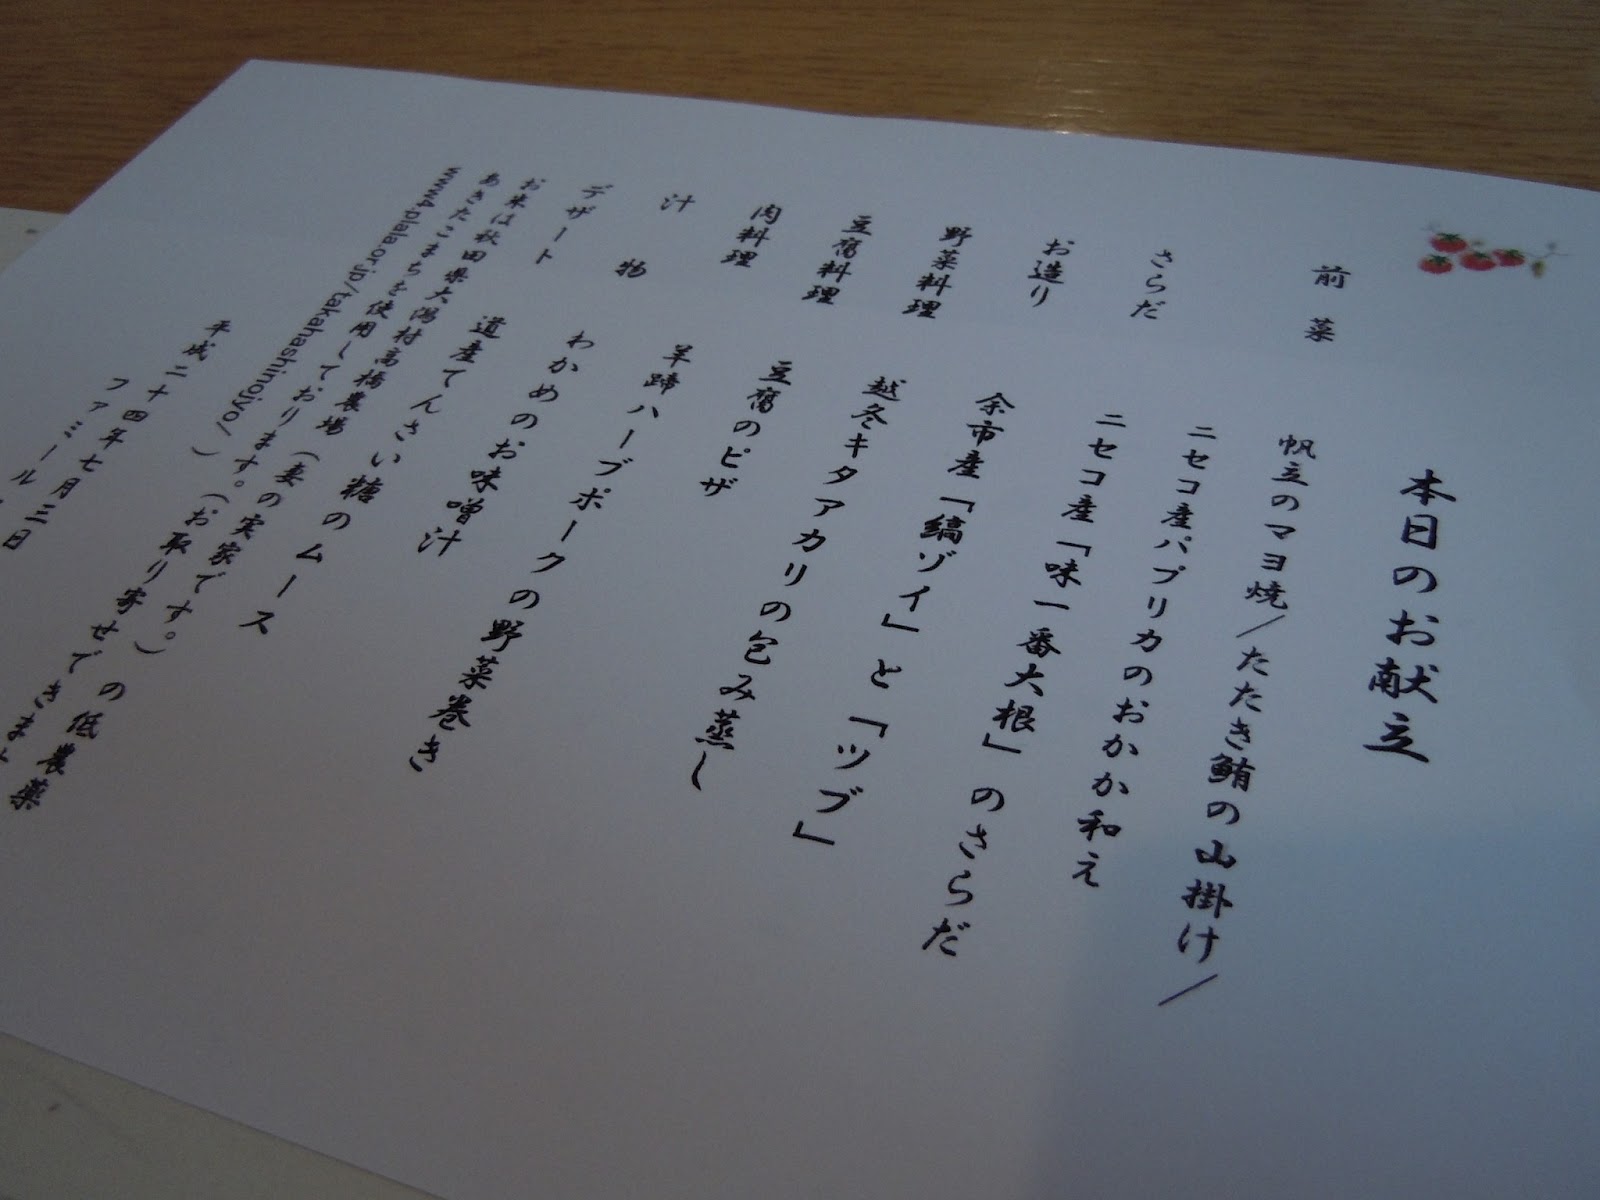 本日のお献立
前菜 帆立のマヨ焼／たたき鮪の山掛け／
ニセコ産パプリカのおかか和え
さらだ ニセコ産「味一番大根」のさらだ
お造り 余市産「縞ゾイ」と「ツブ」
野菜料理 越冬キタアカリの包み蒸し
豆腐料理 豆腐のピザ
肉料理 羊蹄ハーブポークの野菜巻き
汁物 わかめのお味噌汁
デザート 道産てんさい糖のムース
お米は秋田県大潟村高橋農場（妻の実家です。）の低農薬
あきたこまちを使用しております。（お取り寄せできま
www4.plala.or.jp/takahashinojyo/）
平成二十四年七月三日
ファミール